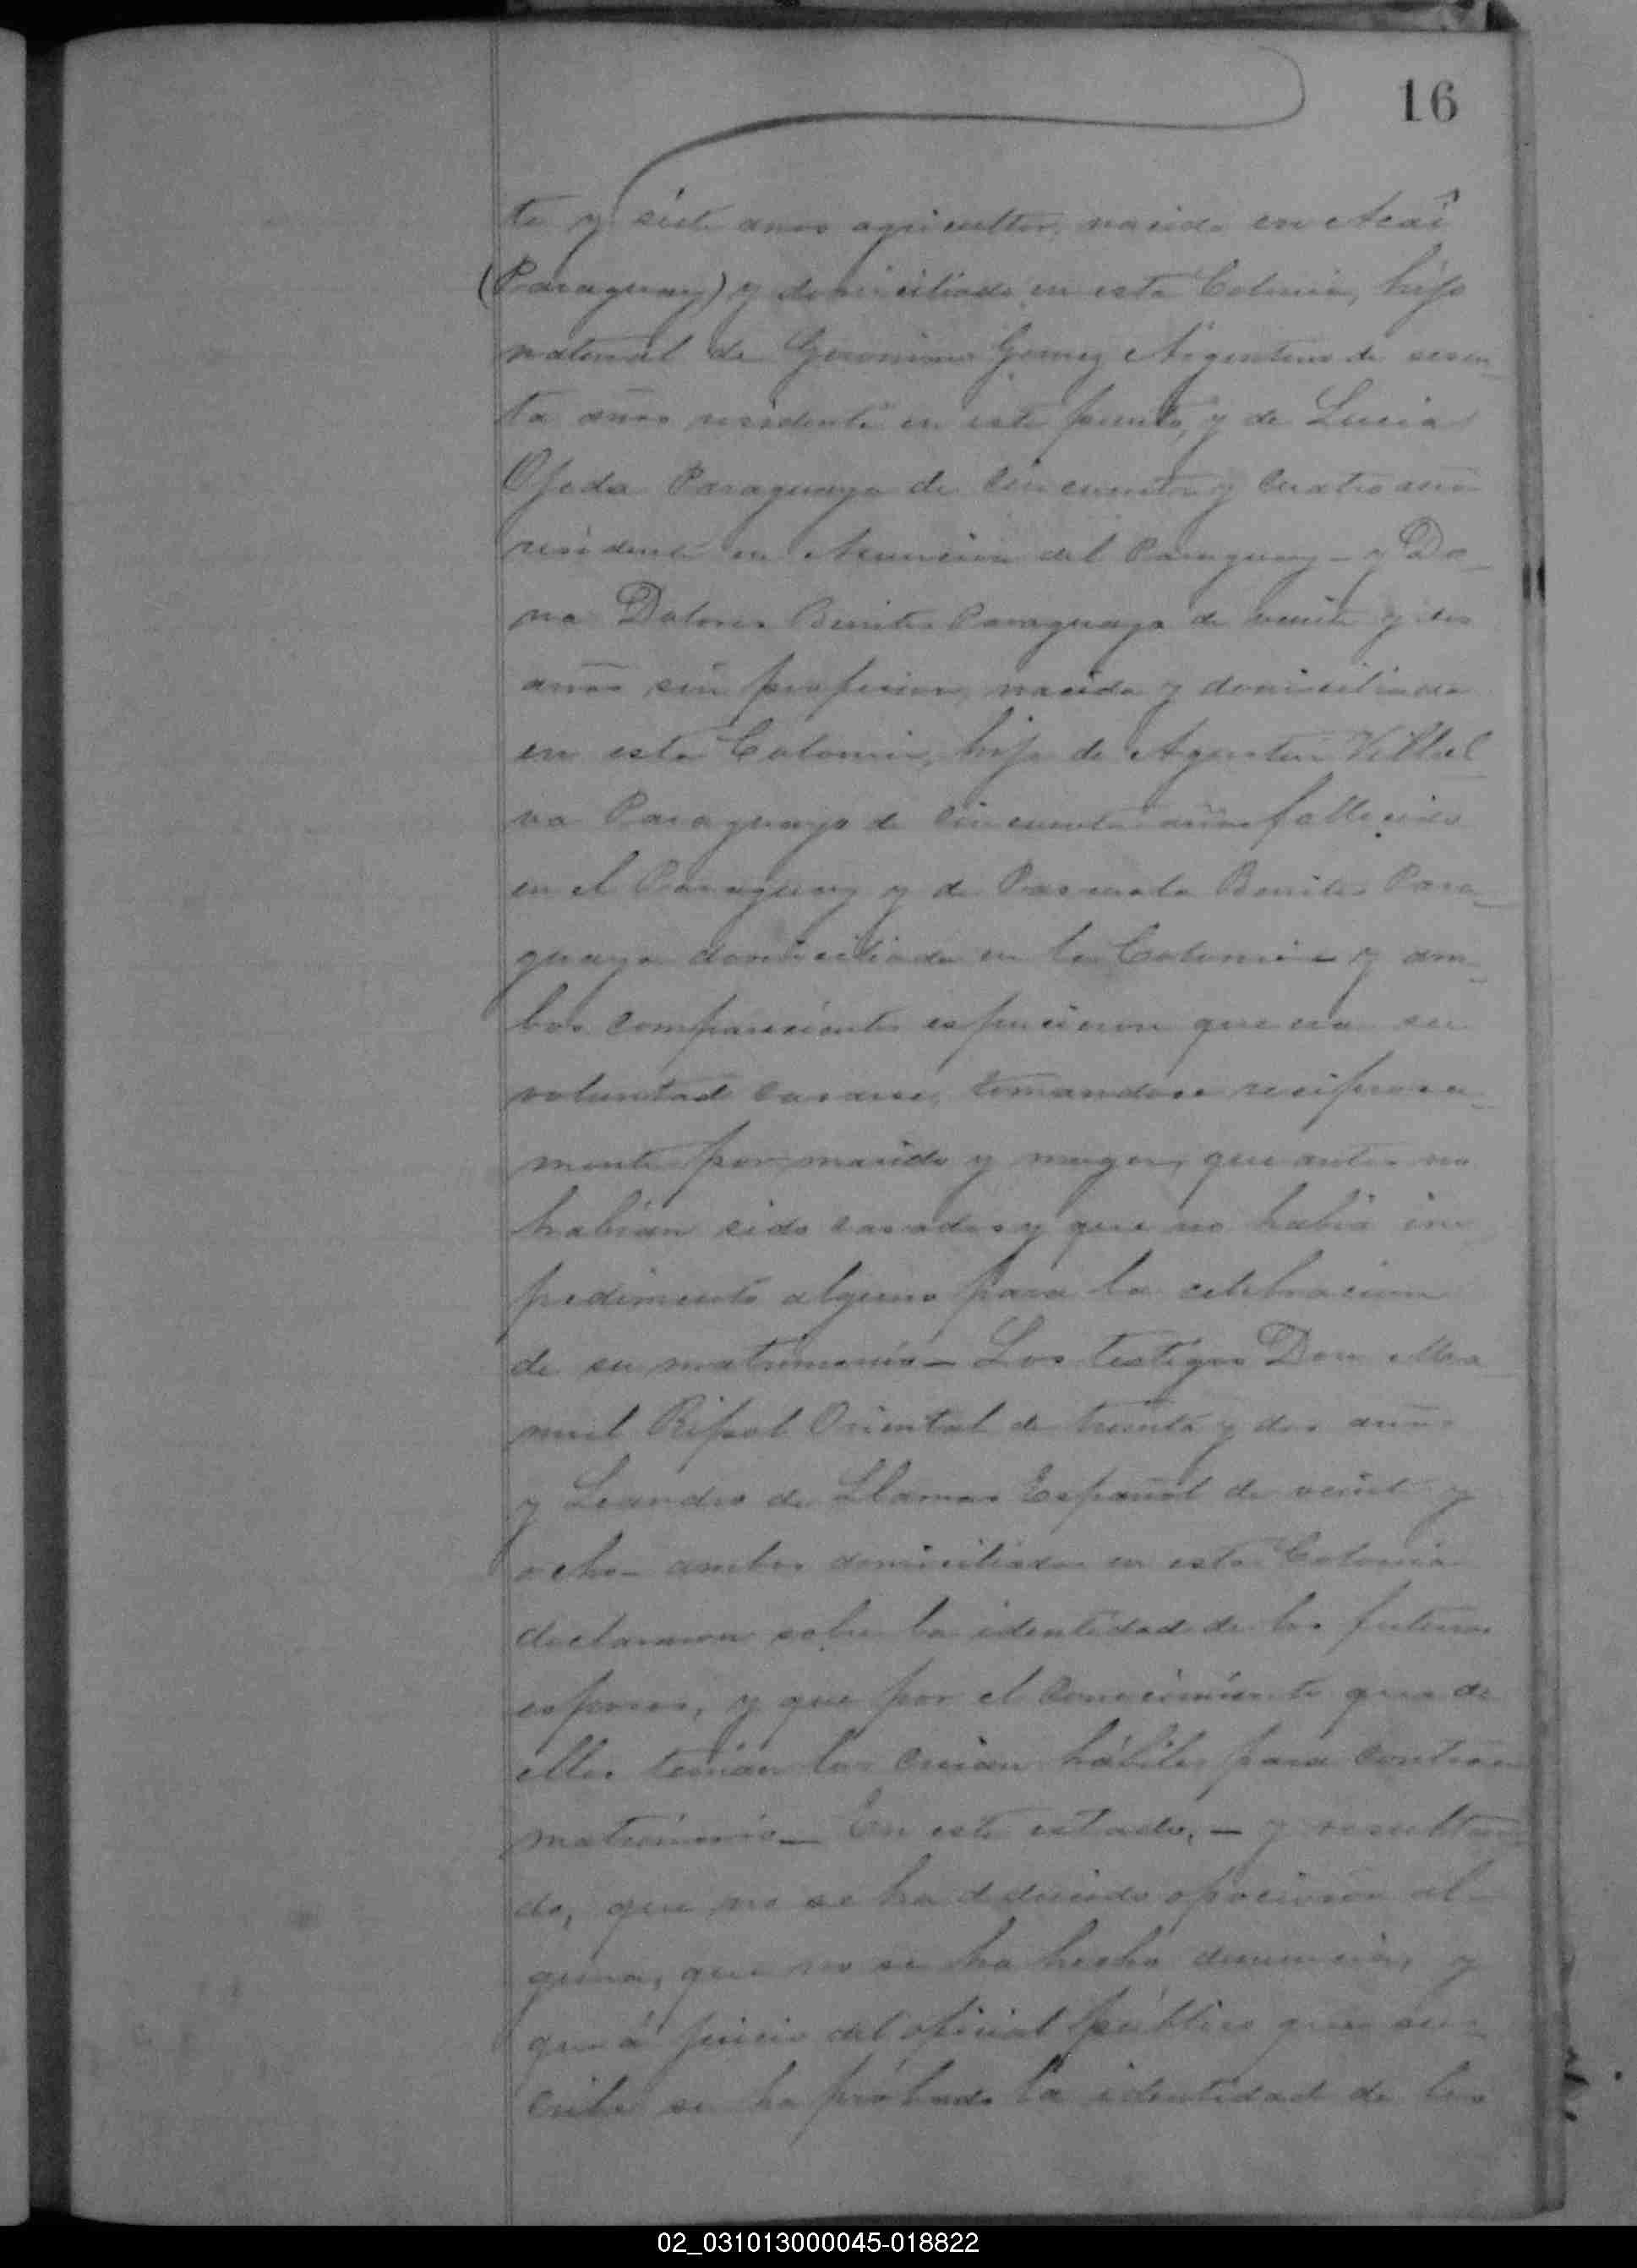 16
te y siete años agricultor, nacido en Acaî
(Paraguay) y domiciliado en esta Colonia, hijo
natural de Geronimo Gomez Argentino de sesen_
ta años residente en este punto, y de Lucia
Ojeda Paraguaya de cincuenta y cuatro años
residente en Asuncion del Paraguay - y Do_
na Dolores Benites Paraguaya de veinte y dos
años sin profesion, nacida y domiciliada
en esta Colonia, hija de Agustin Villal_
va Paraguayo de cincuenta años fallecido
en el Paraguay y de Pascuala Benites Para_
guaya domiciliada en la Colonia - y am_
bos comparecientes espucieron que era su
voluntad casarse, tomandose reciproca_
mente por marido y muger, que antes no
habian sido casados y que no habia im
pedimento alguno para la celebracion
de su matrimonio - Los testigos Don Ma_
nuel Ripol Oriental de treinta y dos años
y Leandro de Llamas Español de veinte y
ocho - ambos domiciliados en esta Colonia
declararon sobre la identidad de los futuros
esposos, y que por el conocimiento que de
ellos tenian los creian hábiles para contraer
matrimonio - En este estado, - y resultan
do, que no se ha deducido oposicion al-
guna, que no se ha hecho denuncia, y
que á juicio del oficial público que sus_
cribe se ha probado la identidad de los
02_031013000045-018822